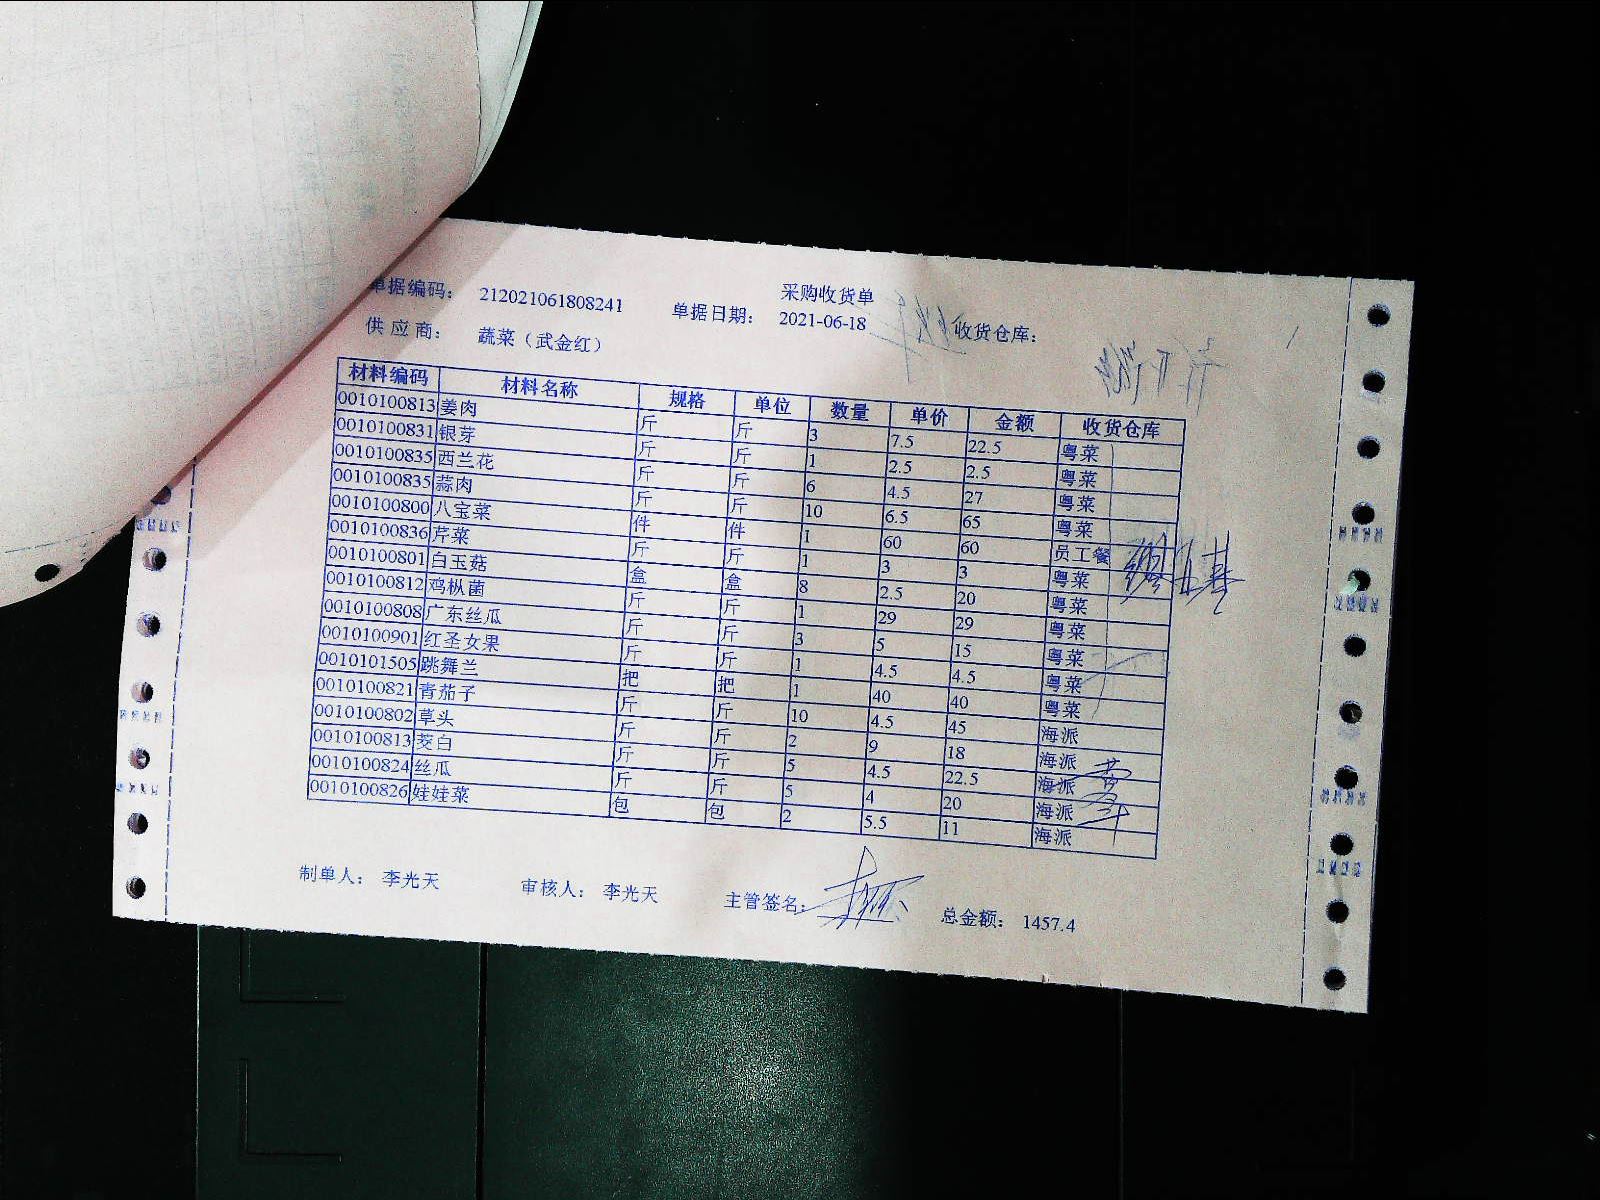 采购收货单
单据编码： 212021061808241 单据日期： 2021-06-18 收货仓库：
供应商： 蔬菜（武金红）
材料编码 材料名称 规格 单位 数量 单价 金额 收货仓库
0010100813 姜肉 斤 斤 3 7.5 22.5 粤菜
0010100831 银芽 斤 斤 1 2.5 2.5 粤菜
0010100835 西兰花 斤 斤 6 4.5 27 粤菜
0010100835 蒜肉 斤 斤 10 6.5 65 粤菜
0010100800 八宝菜 件 件 1 60 60 员工餐
0010100836 芹菜 斤 斤 1 3 3 粤菜
0010100801 白玉菇 盒 盒 8 2.5 20 粤菜
0010100812 鸡枞菌 斤 斤 1 29 29 粤菜
0010100808 广东丝瓜 斤 斤 3 5 15 粤菜
0010100901 红圣女果 斤 斤 1 4.5 4.5 粤菜
0010101505 跳舞兰 把 把 1 40 40 粤菜
0010100821 青茄子 斤 斤 10 4.5 45 海派
0010100802 草头 斤 斤 2 9 18 海派
0010100813 茭白 斤 斤 5 4.5 22.5 海派
0010100824 丝瓜 斤 斤 5 4 20 海派
0010100826 娃娃菜 包 包 2 5.5 11 海派
制单人： 李光天 审核人： 李光天 主管签名： 总金额： 1457.4